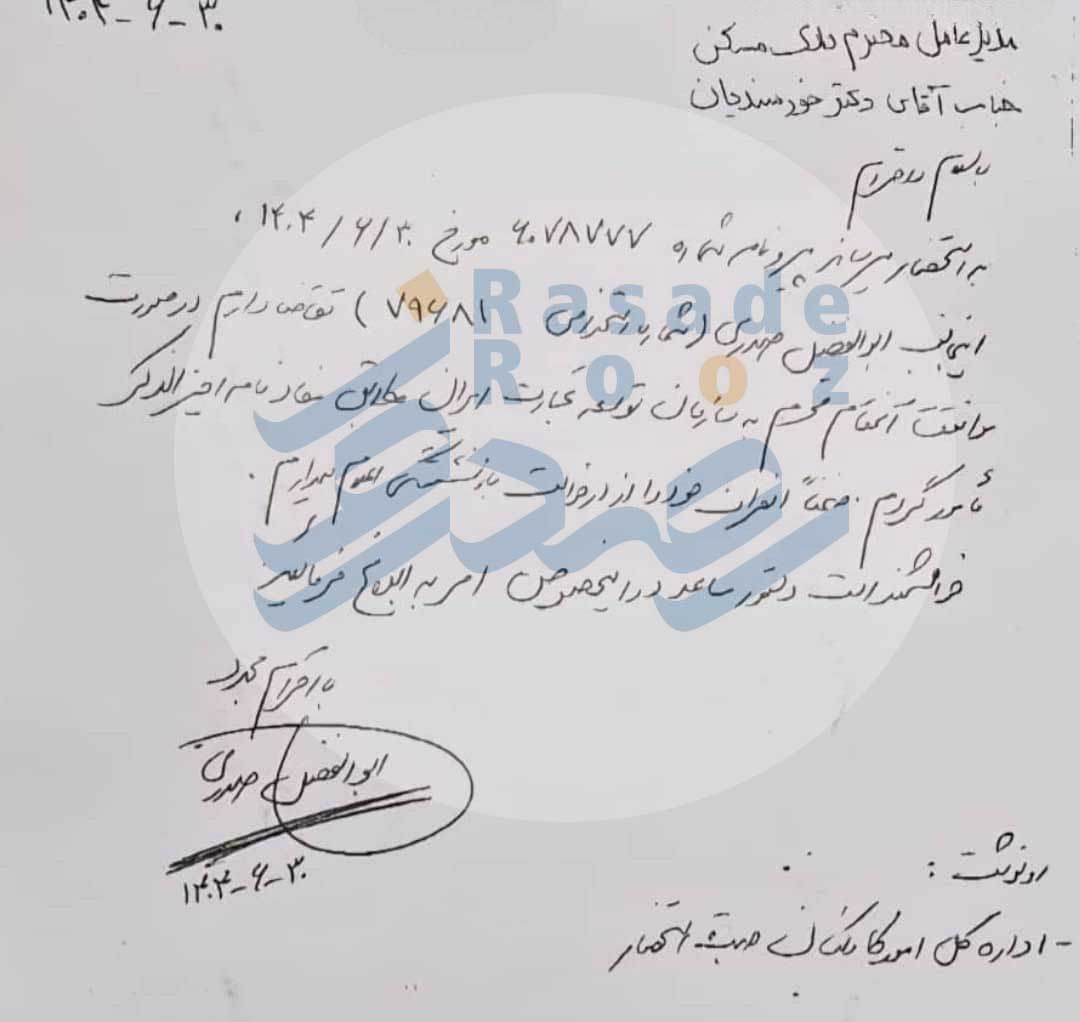 ۱۴۰۴-۶-۳۰
مدیرعامل محترم بانک مسکن
جناب آقای دکتر خورسندیان
با سلام و احترام
به استحضار میرساند پیرو نامه شماره ۶۰۷۸۷۷۷ مورخ ۱۴۰۴/۶/۳۰ ،
اینجانب ابوالفضل (شماره استخدامی ۷۹۶۸۱) تقاضا دارم در صورت
موافقت آنمقام محترم به سازمان توسعه تجارت ایران مطابق مفاد نامه اخیرالذکر
مأمور گردم. ضمناً انصراف خود را از درخواست بازنشستگی اعلام میدارم.
خواهشمند است دستور مساعد در اینخصوص امر به ابلاغ فرمائید
با احترام مجدد
ابوالفضل
۱۴۰۴-۶-۳۰
رونوشت :
- اداره کل امور کارکنان جهت استحضار
Rasade
Rooz
رصد